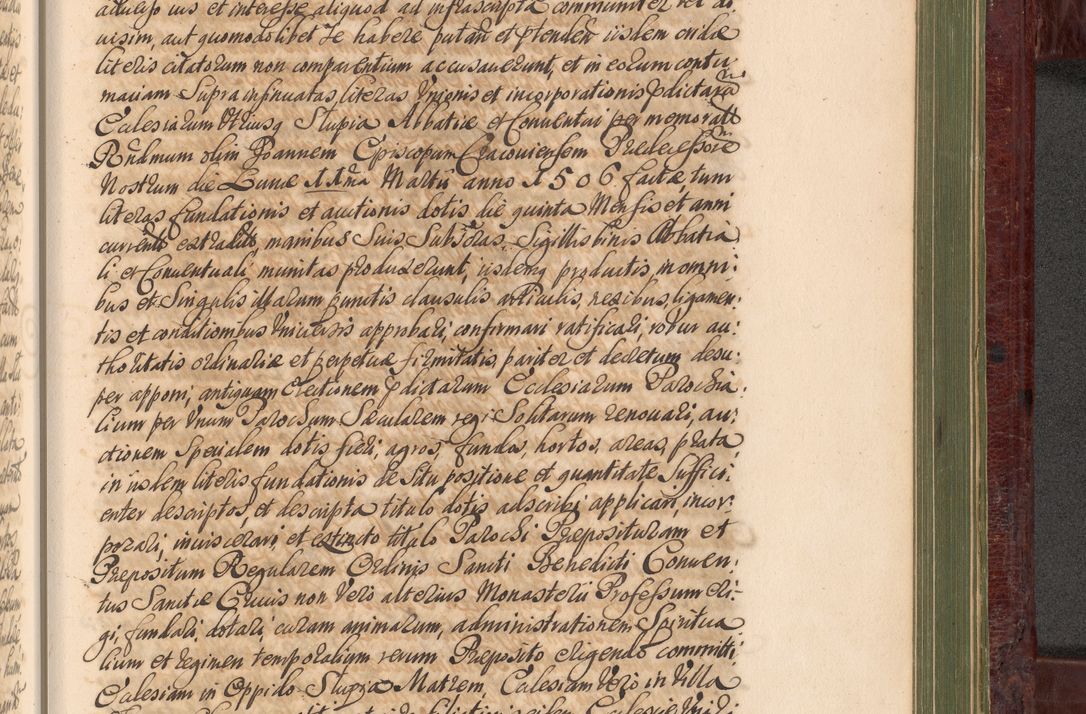 adversus jus et interesse aliquod ad infrascripta communiter vel di:
uisim, aut quomodolibet se habere putan et ptenden iisdem ordiæ
literis citatorum non comparentium accusauerunt, et in eorum contu
maciam Supra insinuatas literas Vnionis et incorporationis pdictarū
Ecclesiarum Vtriusq Slupia Abbatiæ et Conuentui per memoratū
Rndmum olim Joannem Episcopum Cracouiensem Predecessorē
Nostrum die Lunæ Martii anno 1506 factæ, tum
literas fundationis et auctionis dotis die quinta Mensis et anni
currentis extraditas, manibus Suis Subscriptas, Sigillis binis Abbatia
li et Conuentuali munitas produxerunt, iisdemq productis, in omni:
bus et Singulis illarum punctis clausulis articulis, nexibus, ligamen:
tis et conditionibus Vniuersis approbari, confirmari ratificari, robur au:
thoritatis ordinariæ et perpetuæ firmitatis, pariter et decretum desu:
per apponi, antiquam Erectionem pdictarum Ecclesiarum Parochia
lium per Vnum Parochum Sæcularem regi Solitarum renouari, au:
ctionem Specialem dotis fieri, agros, fundos, hortos, areas, prata
in iisdem literis fundationis de Situ positione et quantitate Suffici:
enter descriptos, et descripta titulo dotis adscribi, applicari, incor:
porari, inuiscerari, et extincto titulo Parochi Præposituram et
Præpositum Regularem Ordinis Sancti Benedicti Conuen:
tus Sanctæ Crucis non Vero alterius Monasterii Professum eri:
gi, fundari, dotari, curam animarum, administrationem Spiritua
lium et regimen temporalium rerum Præposito eligendo committi,
Ecclesiam in Oppido Slupia Matrem, Ecclesiam Vero in Villa